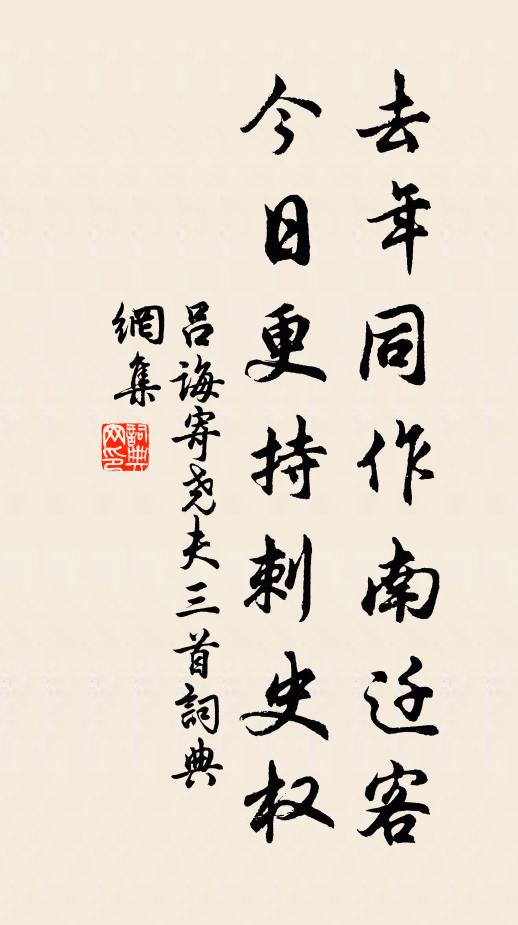 去年同作南迁客
今日更持刺史权
吕誨寄尧夫三首詞典
網集
詞典網印